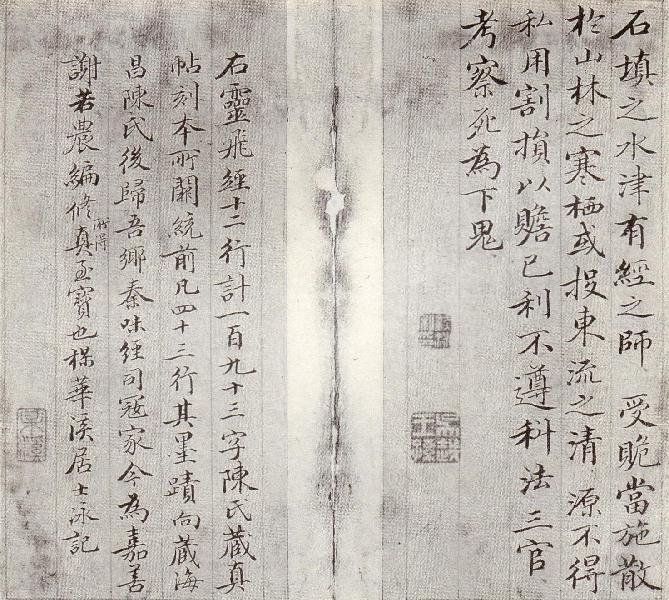 石填之水津有經之師 受賍當施散
於山林之寒栖或投東流之清 源不得
私用割損以贍己利不遵科法三官
考察死為下鬼
右靈飛經十二行計一百九十三字陳氏藏真
帖刻本所闕統前凡四十三行其墨蹟向藏海
昌陳氏後歸吾鄉秦味經司寇家今為嘉善
謝若農編修所得真至寶也梅華溪居士泳記